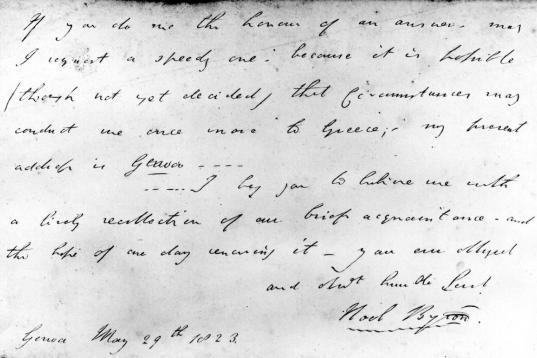 If you do me the honour of an answer may
I request a speedy one; because it is possible
(though not yet decided) that Circumstances may
conduct me once more to Greece;– my present
address is Genoa ----
----- I beg you to believe me with
a lively recollection of our brief acquaintance - and
the hope of one day renewing it – your ever obliged
and obdt humble Servt
Noel Byron.
Genoa May 29th 1823.